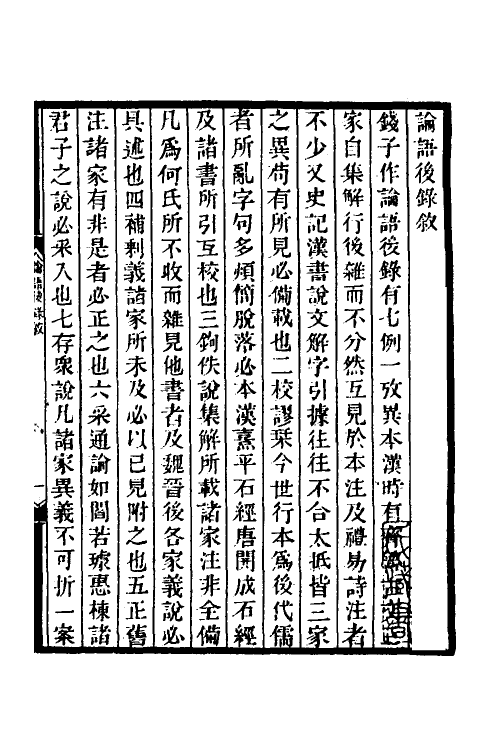 論語後錄敘
錢子作論語後錄有七例一攷異本漢時有
家自集解行後雜而不分然互見於本注及禮易詩注者
不少又史記漢書說文解字引據往往不合大抵皆三家
之異苟有所見必備載也二校謬棊今世行本爲後代儒
者所亂字句多煩簡脫落必本漢熹平石經唐開成石經
及諸書所引互校也三鉤佚說集解所載諸家注非全備
凡爲何氏所不收而雜見他書者及魏晉後各家義說必
具述也四補剩義諸家所未及必以已見附之也五正舊
注諸家有非是者必正之也六采通論如閻若璩惠棟諸
君子之說必采入也七存衆說凡諸家異義不可折一案
論語後錄敘
一